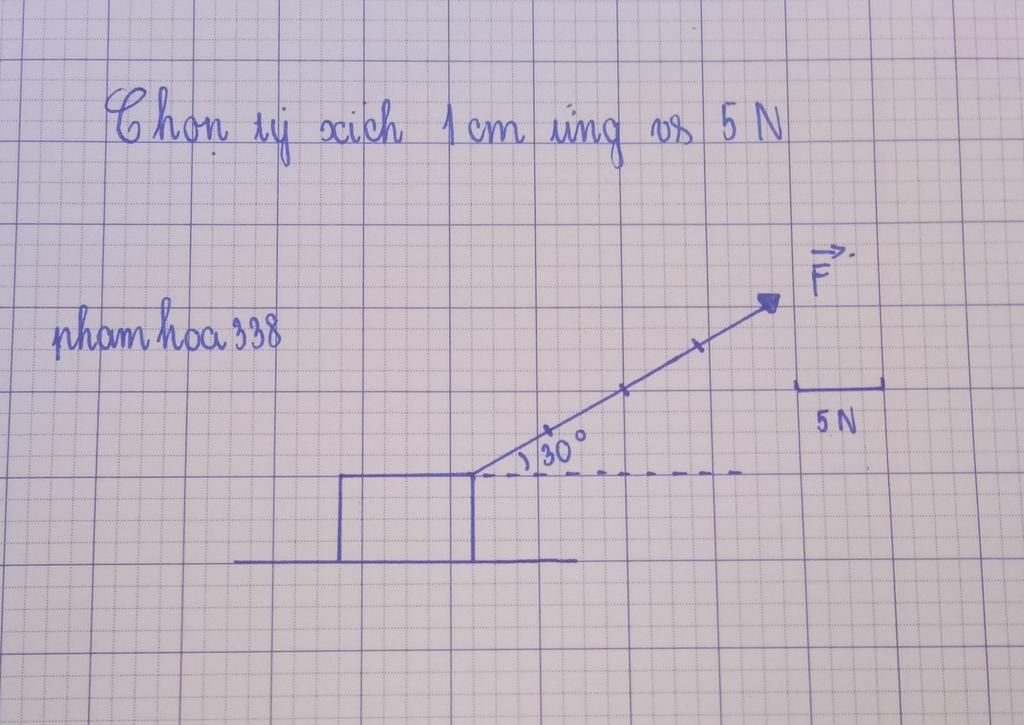 Chọn tỷ xích 1 cm ứng vs 5 N
F
phamhoa338
5 N
30°